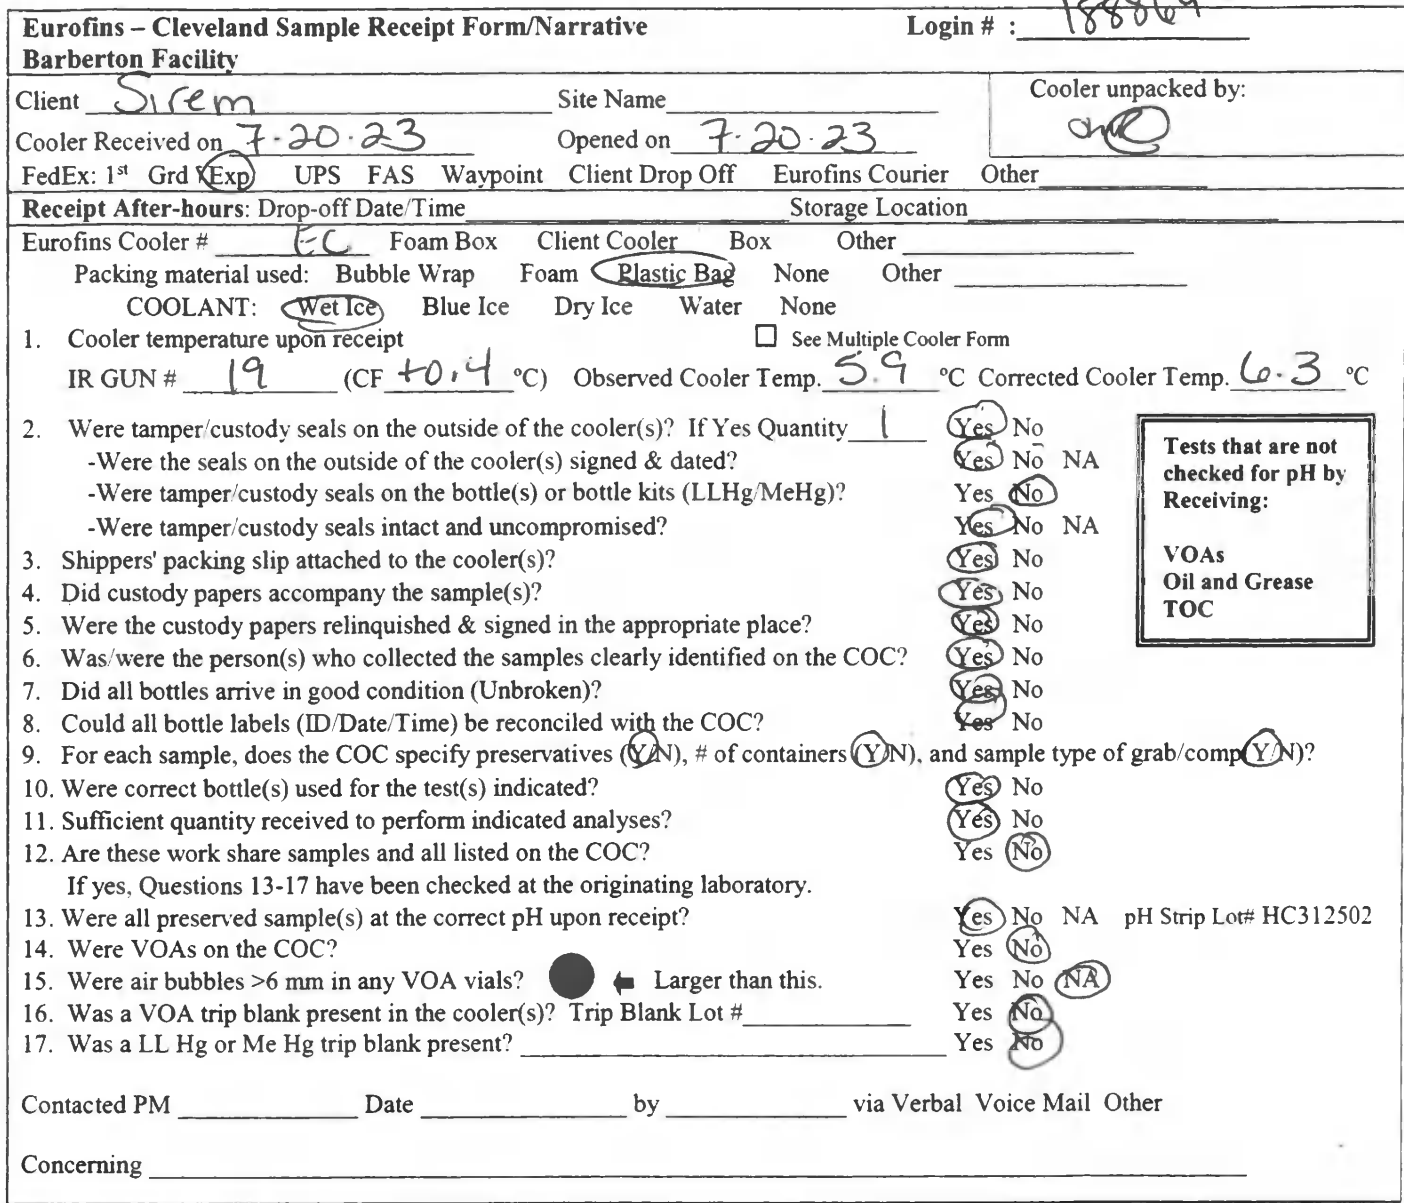 Eurofins – Cleveland Sample Receipt Form/Narrative Login # : 188869
Barberton Facility
Client Sirem Site Name Cooler unpacked by:
Cooler Received on 7-20-23 Opened on 7-20-23
FedEx: 1st Grd Exp UPS FAS Waypoint Client Drop Off Eurofins Courier Other
Receipt After-hours: Drop-off Date/Time Storage Location
Eurofins Cooler # EC Foam Box Client Cooler Box Other
Packing material used: Bubble Wrap Foam Plastic Bag None Other
COOLANT: Wet Ice Blue Ice Dry Ice Water None
1. Cooler temperature upon receipt ☐ See Multiple Cooler Form
IR GUN # 19 (CF +0.4 °C) Observed Cooler Temp. 5.9 °C Corrected Cooler Temp. 6.3 °C
2. Were tamper/custody seals on the outside of the cooler(s)? If Yes Quantity 1 Yes No
-Were the seals on the outside of the cooler(s) signed & dated? Yes No NA
-Were tamper/custody seals on the bottle(s) or bottle kits (LLHg/MeHg)? Yes No
-Were tamper/custody seals intact and uncompromised? Yes No NA
3. Shippers' packing slip attached to the cooler(s)? Yes No
4. Did custody papers accompany the sample(s)? Yes No
5. Were the custody papers relinquished & signed in the appropriate place? Yes No
6. Was/were the person(s) who collected the samples clearly identified on the COC? Yes No
7. Did all bottles arrive in good condition (Unbroken)? Yes No
8. Could all bottle labels (ID/Date/Time) be reconciled with the COC? Yes No
9. For each sample, does the COC specify preservatives (Y/N), # of containers (Y/N), and sample type of grab/comp(Y/N)?
10. Were correct bottle(s) used for the test(s) indicated? Yes No
11. Sufficient quantity received to perform indicated analyses? Yes No
12. Are these work share samples and all listed on the COC? Yes No
If yes, Questions 13-17 have been checked at the originating laboratory.
13. Were all preserved sample(s) at the correct pH upon receipt? Yes No NA pH Strip Lot# HC312502
14. Were VOAs on the COC? Yes No
15. Were air bubbles >6 mm in any VOA vials? Larger than this. Yes No NA
16. Was a VOA trip blank present in the cooler(s)? Trip Blank Lot # Yes No
17. Was a LL Hg or Me Hg trip blank present? Yes No
Tests that are not
checked for pH by
Receiving:
VOAs
Oil and Grease
TOC
Contacted PM Date by via Verbal Voice Mail Other
Concerning